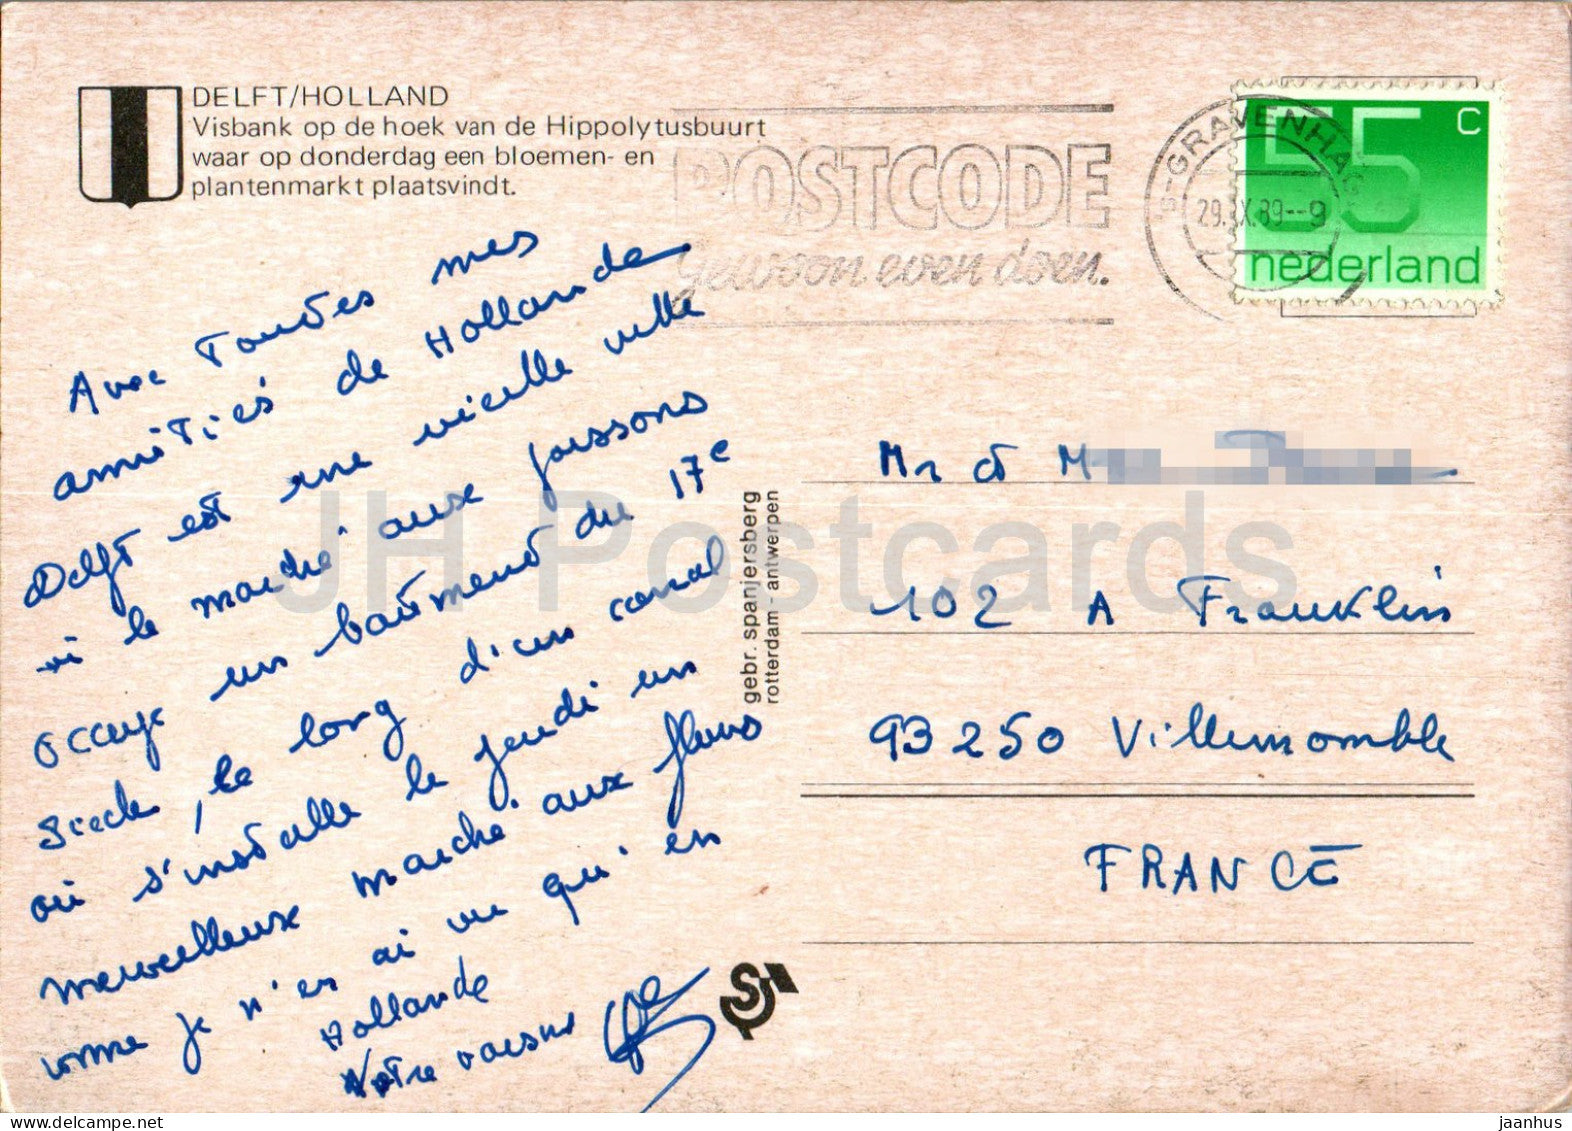 DELFT/HOLLAND
Visbank op de hoek van de Hippolytusbuurt
waar op donderdag een bloemen- en
plantenmarkt plaatsvindt.
POSTCODE
gewoon even doen.
's-GRAVENHAGE
29.IX.89--9
55 c
nederland
Avec Toutes mes
amitiés de Hollande
Delft est une vieille ville
où le marché aux poissons
occupe un bâtiment du 17e
siècle, le long d'un canal
où s'installe le jeudi un
merveilleux marché aux fleurs
comme je n'en ai vu qu'en
Hollande
Votre voisine
gebr. spanjersberg
rotterdam - antwerpen
Mr et M
102 A Franklin
93250 Villemomble
FRANCE
JH Postcards
jaanhus
hipstamp.com